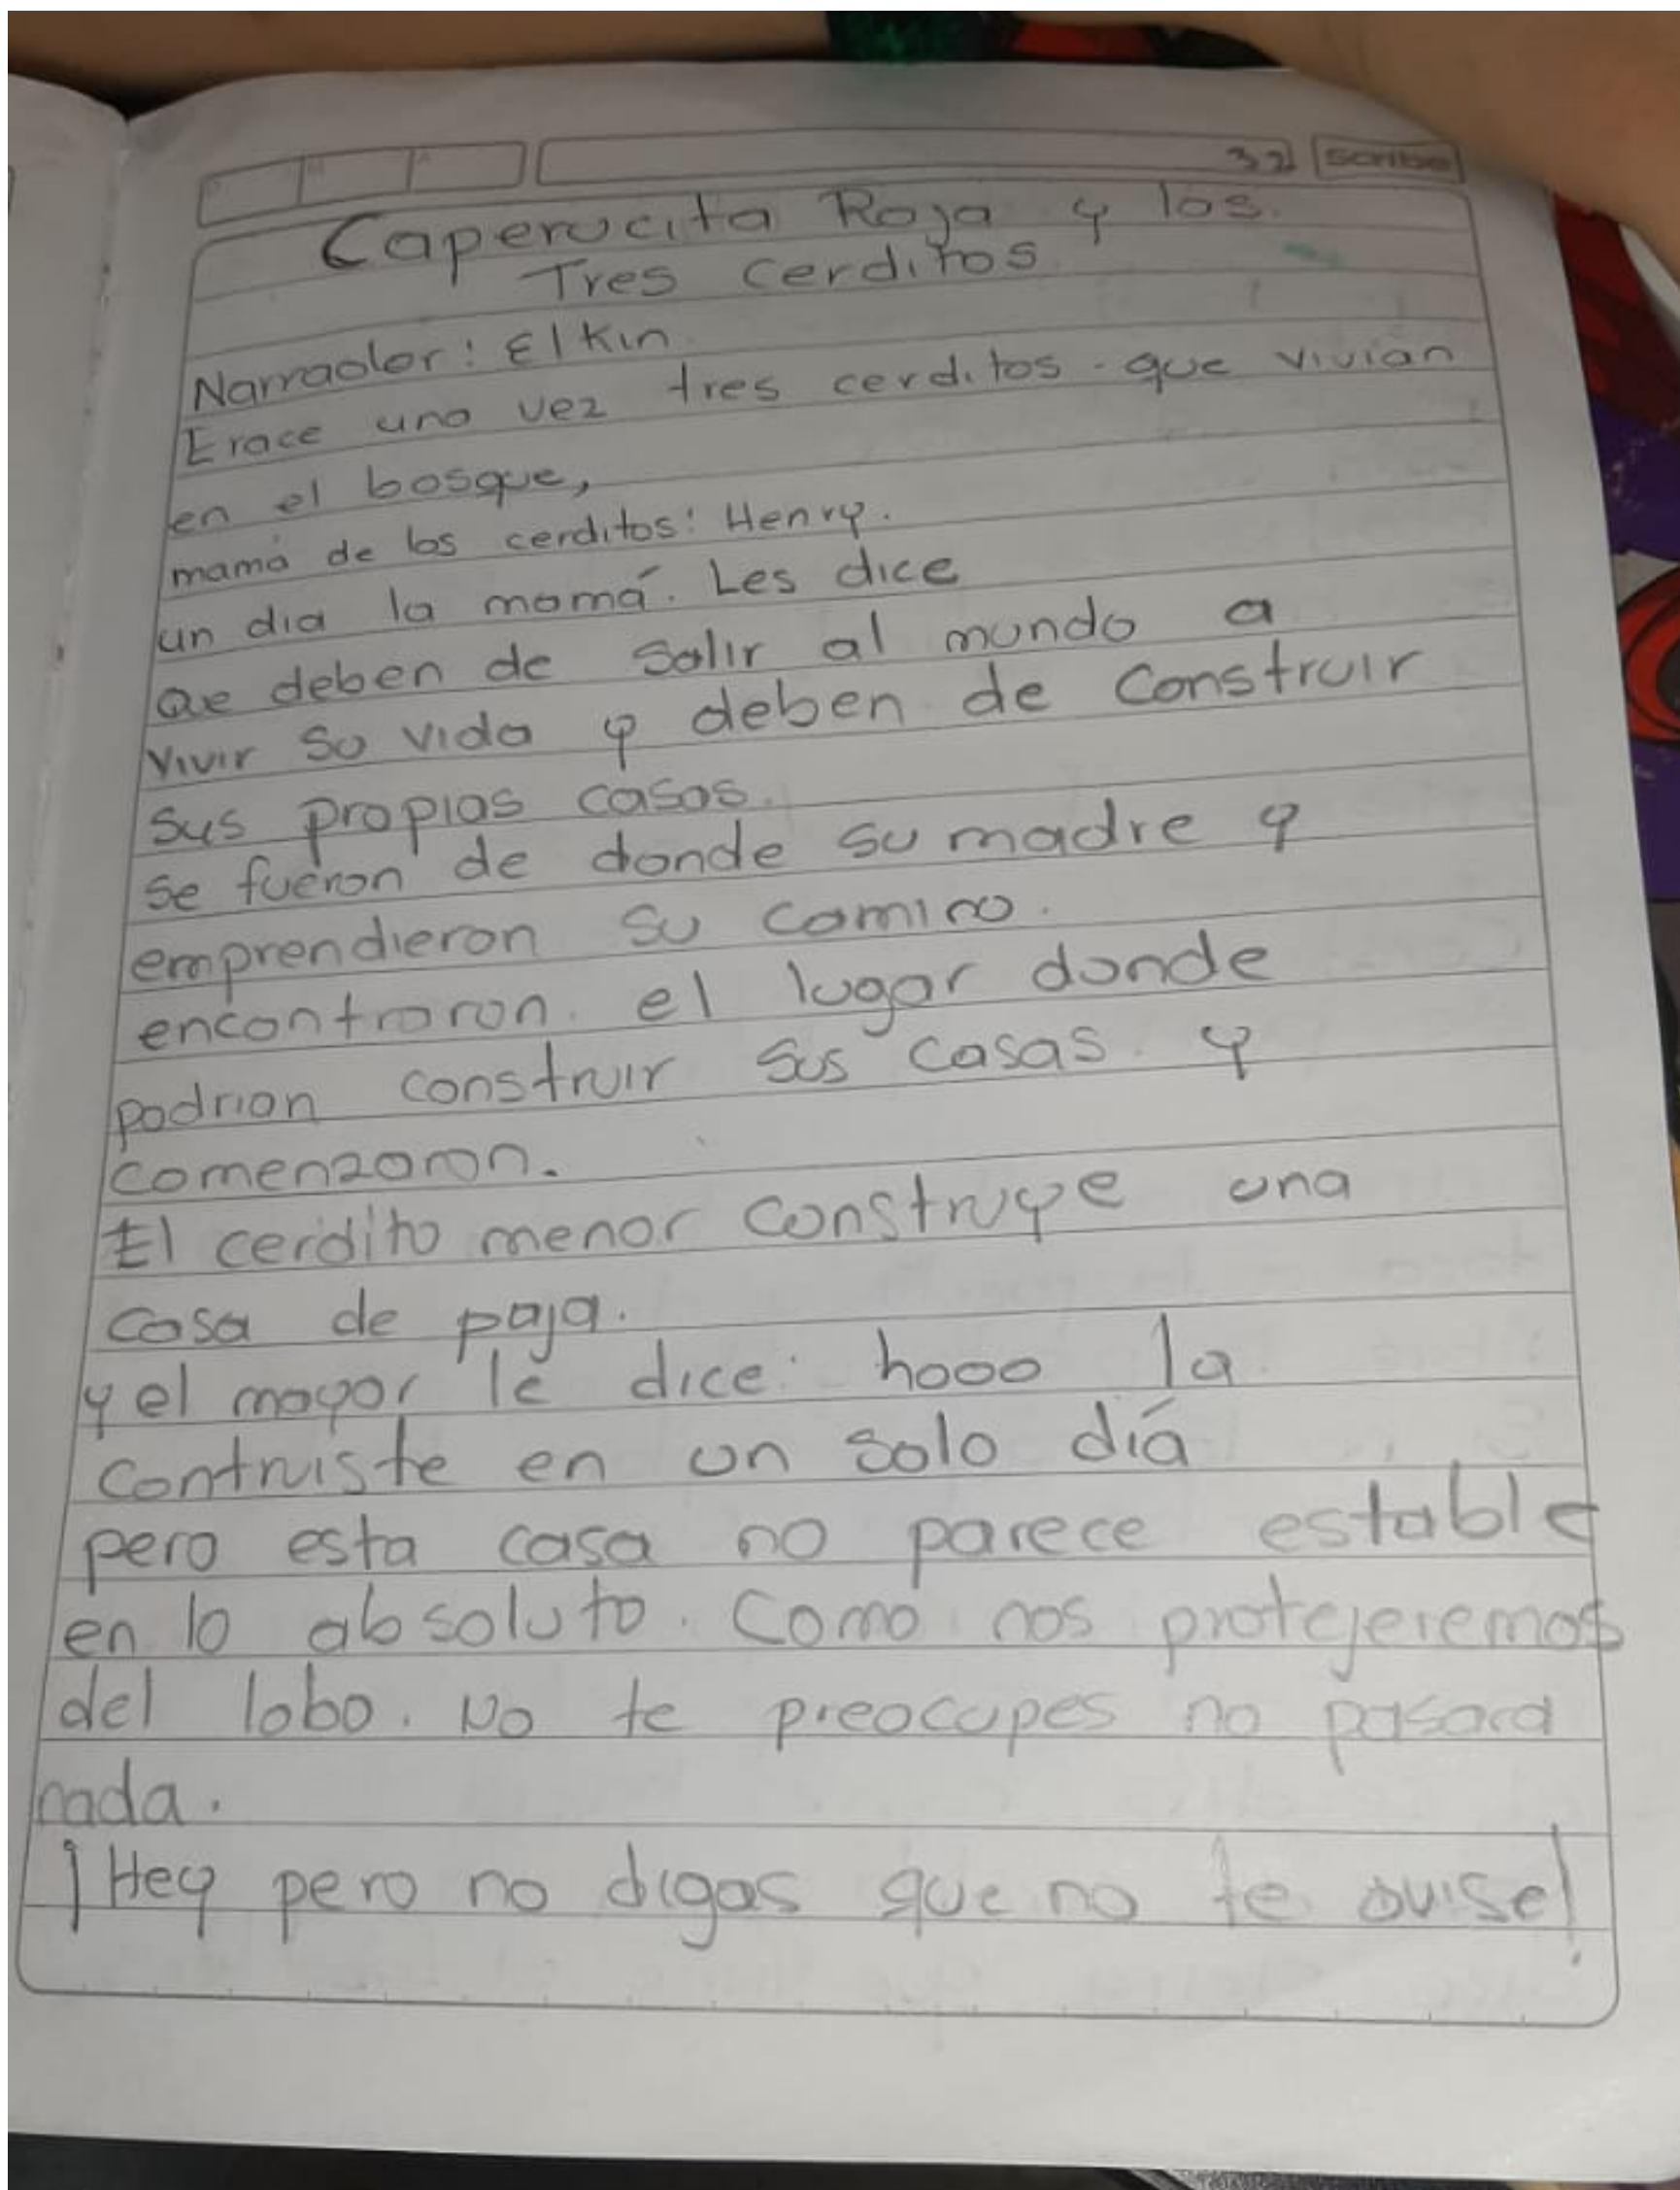 32 scribe
Caperucita Roja y los.
Tres cerditos
Narrador: Elkin
Erace una vez tres cerditos - que vivian
en el bosque,
mamá de los cerditos: Henry.
un dia la mamá. Les dice
Qe deben de salir al mundo a
vivir su vida y deben de construir
sus propias casas.
se fueron de donde su madre y
emprendieron su camino.
encontraron. el lugar donde
podrian construir sus casas. y
comenzaron.
El cerdito menor construye una
casa de paja.
y el mayor le dice: hooo la
contruiste en un solo diá
pero esta casa no parece estable
en lo absoluto. Como nos protejeremos
del lobo. No te preocupes no pasara
nada.
¡Hey pero no digas que no te avise!